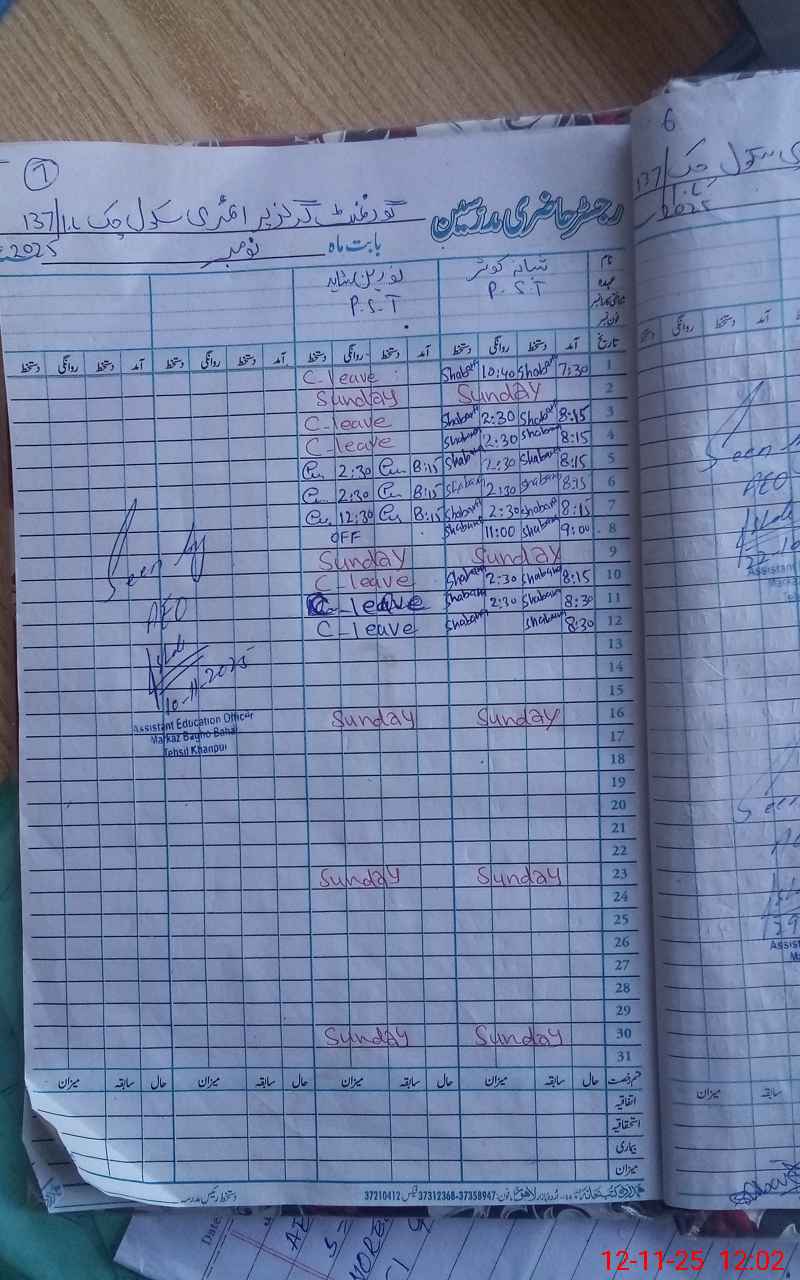 7
رجسٹر حاضری مدرسین گورنمنٹ گرلز پرائمری سکول چک 137/1.L
بابت ماہ نومبر 2025
نام شبانہ کوثر
عہدہ P.S.T P.S.T
تاریخ آمد دستخط روانگی دستخط آمد دستخط روانگی دستخط آمد دستخط روانگی دستخط آمد دستخط روانگی دستخط
1 7:30 Shabana 10:40 Shabana C-leave
2 Sunday Sunday
3 8:15 Shabana 2:30 Shabana C-leave
4 8:15 Shabana 2:30 Shabana C-leave
5 8:15 Shabana 2:30 Shabana 8:15 2:30
6 8:15 Shabana 2:30 Shabana 8:15 2:30
7 8:15 Shabana 2:30 Shabana 8:15 12:30
8 9:00 Shabana 11:00 Shabana OFF
9 Sunday Sunday
10 8:15 Shabana 2:30 Shabana C-leave
11 8:30 Shabana 2:30 Shabana C-leave
12 8:30 Shabana Shabana C-leave
13
14
15
16 Sunday Sunday
17
18
19
20
21
22
23 Sunday Sunday
24
25
26
27
28
29
30 Sunday Sunday
31
Seen by
AEO
10-11-2025
Assistant Education Officer
Markaz Bagho Bahar
Tehsil Khanpur
قسم رخصت حال سابقہ میزان حال سابقہ میزان حال سابقہ میزان حال سابقہ میزان
اتفاقیہ
استحقاقیہ
بیماری
میزان
اردو بازار لاہور فون: 37358947-37312368 فیکس 37210412
دستخط رئیس مدرسہ
6
137/1.L
2025
دستخط روانگی دستخط آمد
Seen
AEO
Assistant
میزان سابقہ
Date
12-11-25 12:02